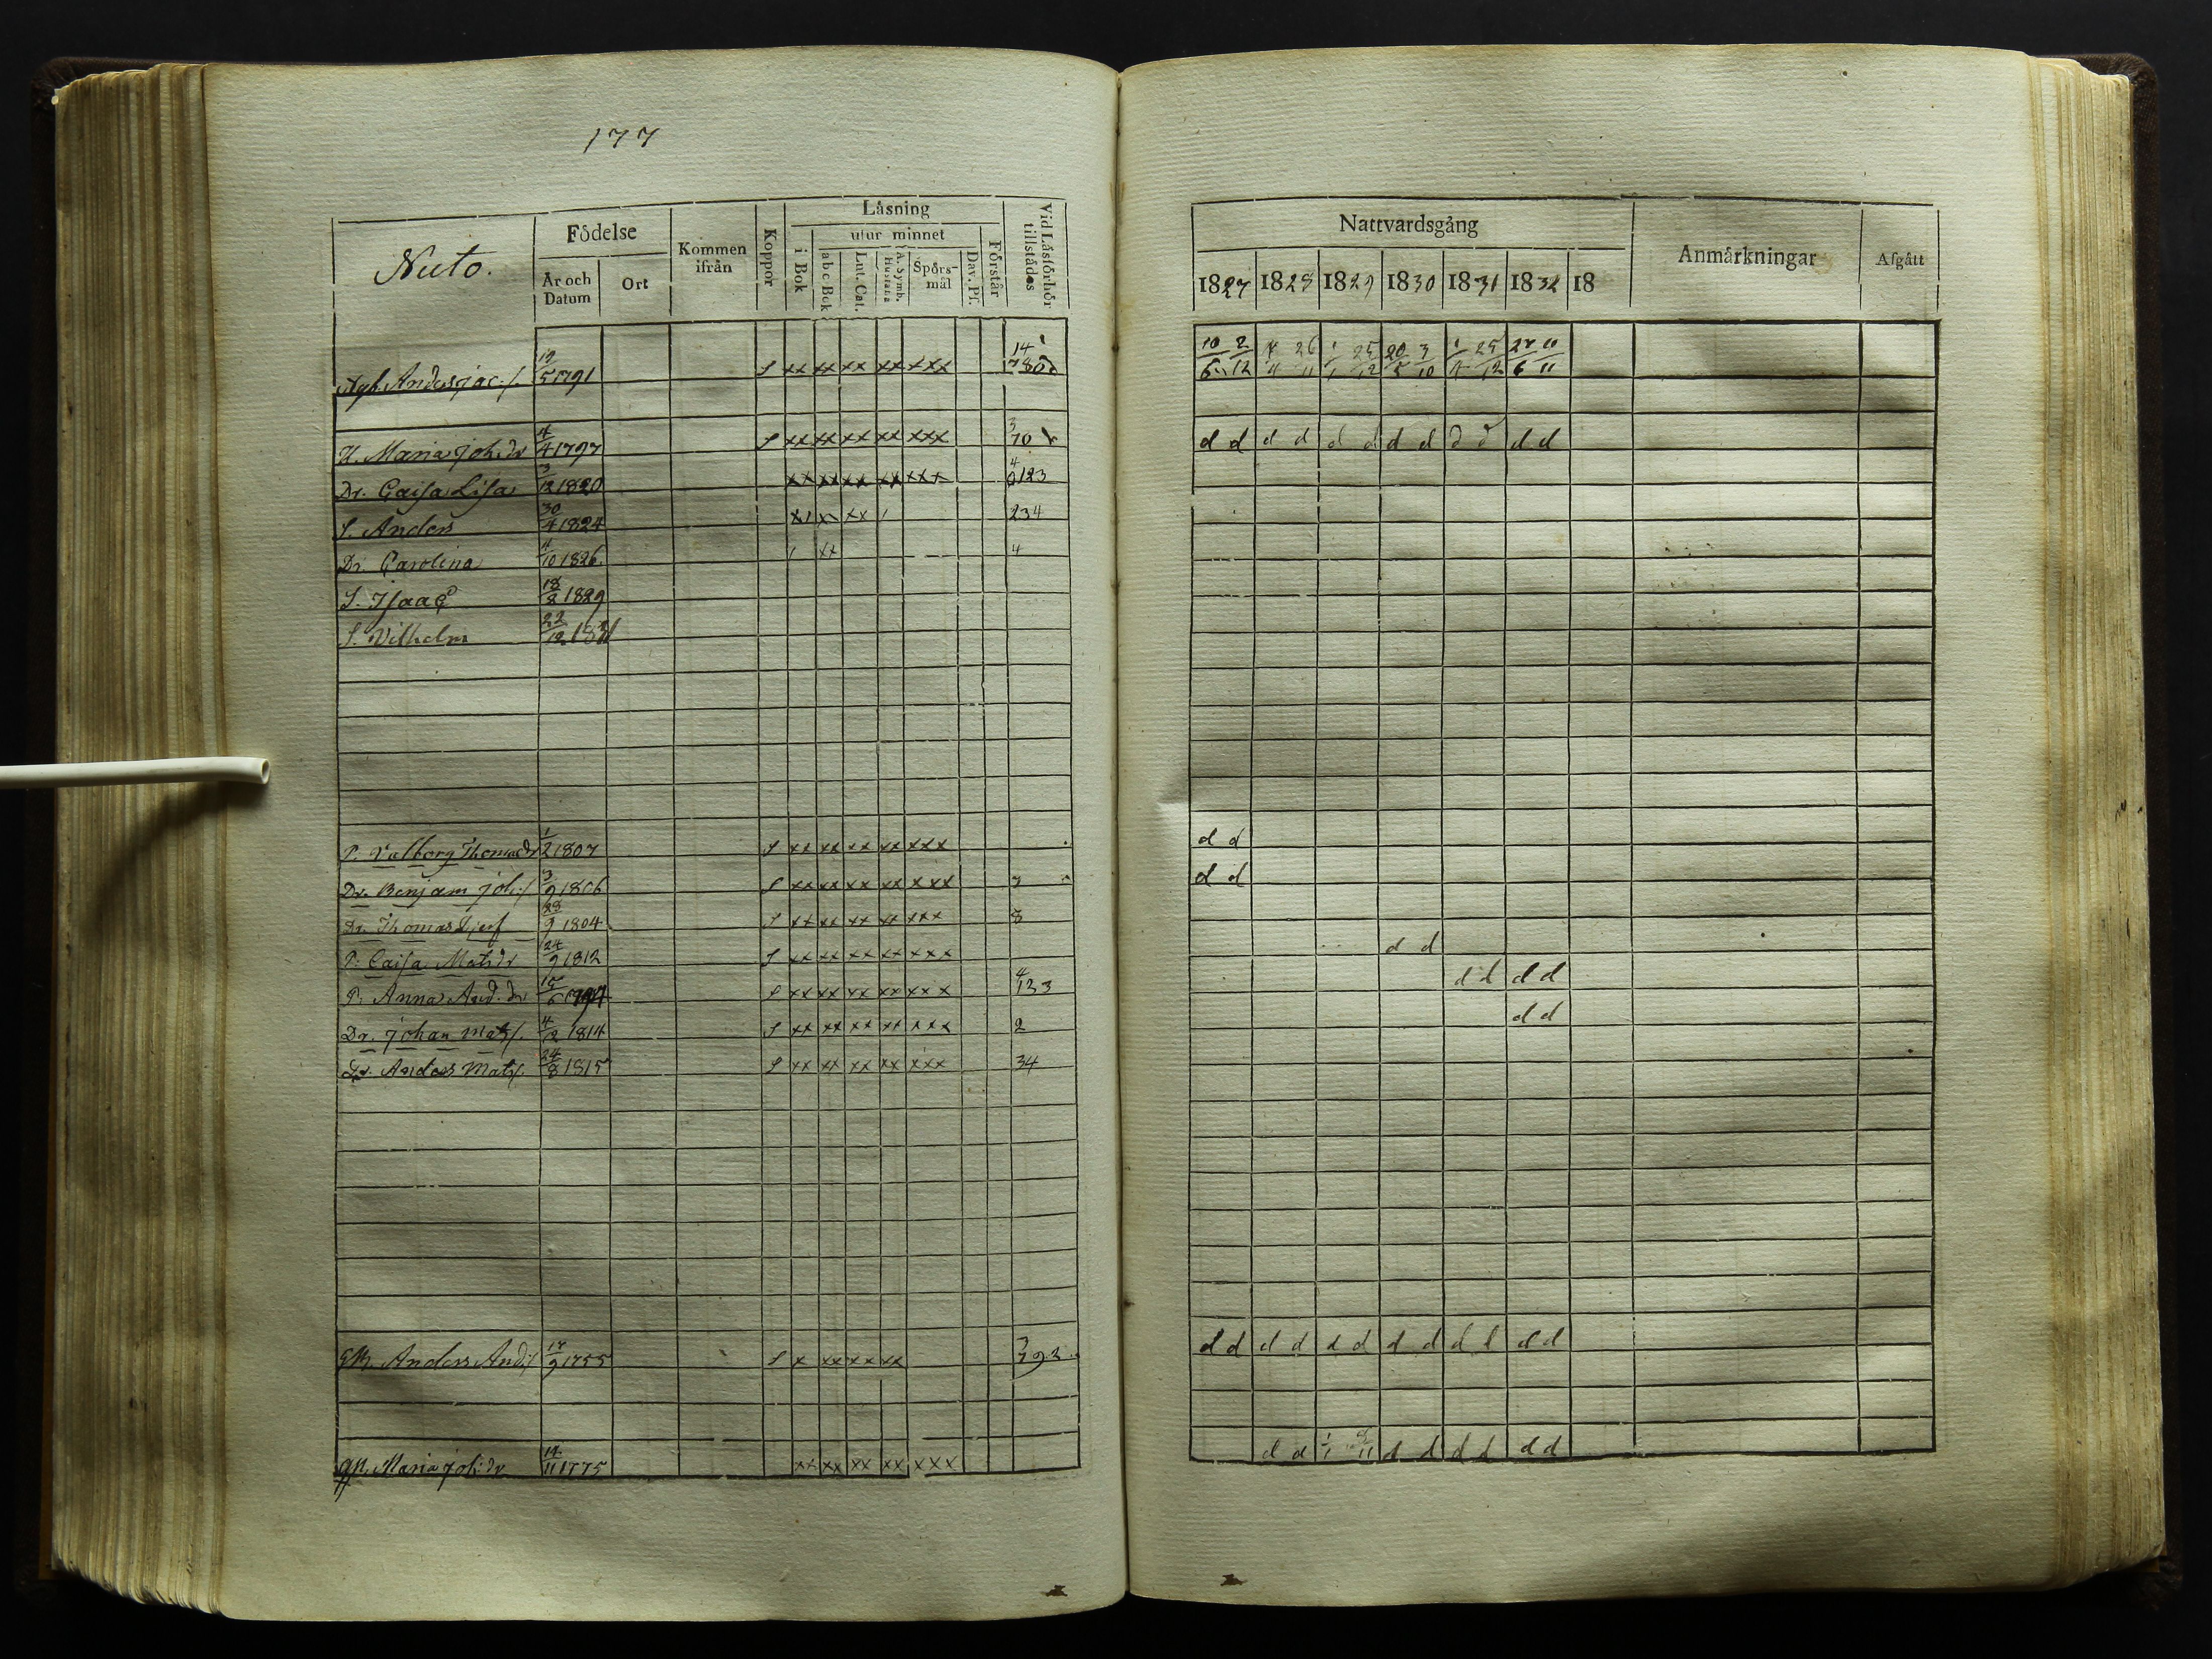 177
Nuto.
Födelse
År och Datum
Ort
Kommen ifrån
Koppor
Låsning
i Bok
utur minnet
abc Bok
Lut. Cat.
A. Symb. Hustafla
Spörsmål
Dav. Ps.
Förstår
Vid Läsförhör tillstådes
Nattvardsgång
1827 1828 1829 1830 1831 1832 18
Anmårkningar
Afgått
Anders Jac:s. 19/5 1791 S xx xx xx xx xxx 10/6 2/12 26/11 1/1 25/12 20/5 3/10 25/12 27/6 11/11
H. Maria Joh:dr 4/4 1797 S xx xx xx xx xxx 3 70 d d d d d d d d d d d d
Dr. Caisa Lisa 3/12 1820 xx xx xx xx xxx 4 0123
S. Anders 30/4 1824 xx 1 234
Dr. Carolina 4/10 1826 1 xx 4
S. Isaac 18/2 1829
S. Vilhelm 22/12 1831
P. Valborg Thomasdr 1/2 1807 S xx xx xx xx xxx d d
Dr. Benjam Joh:s 3/9 1806 S xx xx xx xx xxx 7 d d
Dr. Thomas 28/9 1804 S xx xx xx xx xxx 8
P. Caisa Matsdr 24/9 1812 S xx xx xx xx xxx d d
P. Anna And:dr 15/6 S xx xx xx xx xxx 4 123 d d d d
Dr. Johan Mats. 4/12 1814 S xx xx xx xx xxx 2 d d
Dr. Anders Mats. 24/8 1815 S xx xx xx xx xxx 34
Anders And:s 17/9 1755 S x xx xx xx 792 d d d d d d d d d d d d
Maria Joh:dr 14/11 1775 xx xx xx xx xxx d d 1/1 d d d d d d